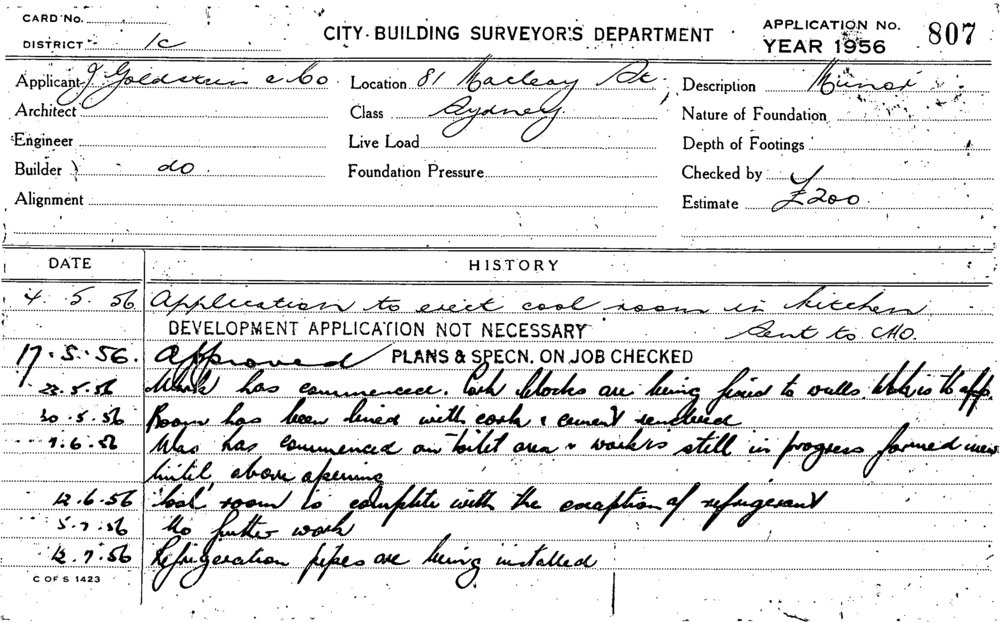 CARD No.
DISTRICT 1c
CITY BUILDING SURVEYOR'S DEPARTMENT
APPLICATION No. 807
YEAR 1956
Applicant J Goldstein & Co. Location 81 Macleay St. Description Minor
Architect Class Sydney Nature of Foundation
Engineer Live Load Depth of Footings
Builder do. Foundation Pressure Checked by
Alignment Estimate £200
DATE HISTORY
4. 5. 56 Application to erect cool room in kitchen
DEVELOPMENT APPLICATION NOT NECESSARY Sent to CHO.
17.5.56. Approved PLANS & SPECN. ON JOB CHECKED
23.5.56 Work has commenced. Cork blocks are being fixed to walls. Work is to app.
30.5.56 Room has been lined with cork & cement rendered
7.6.56 has commenced on toilet area & work is still in progress formed new
lintel above opening
12.6.56 Cool room is complete with the exception of refrigerant
5.7.56 No further work
12.7.56 Refrigeration pipes are being installed
C OF S 1423